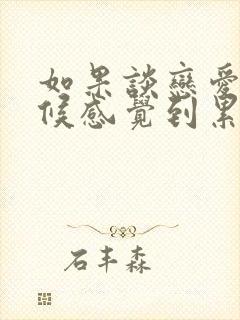 如果談戀愛
候感覺到累
石丰森